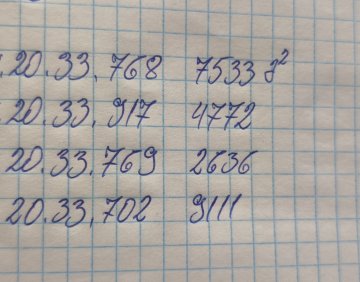 .20.33.768 7533 г²
.20.33.917 4772
20.33.769 2636
20.33.702 9111